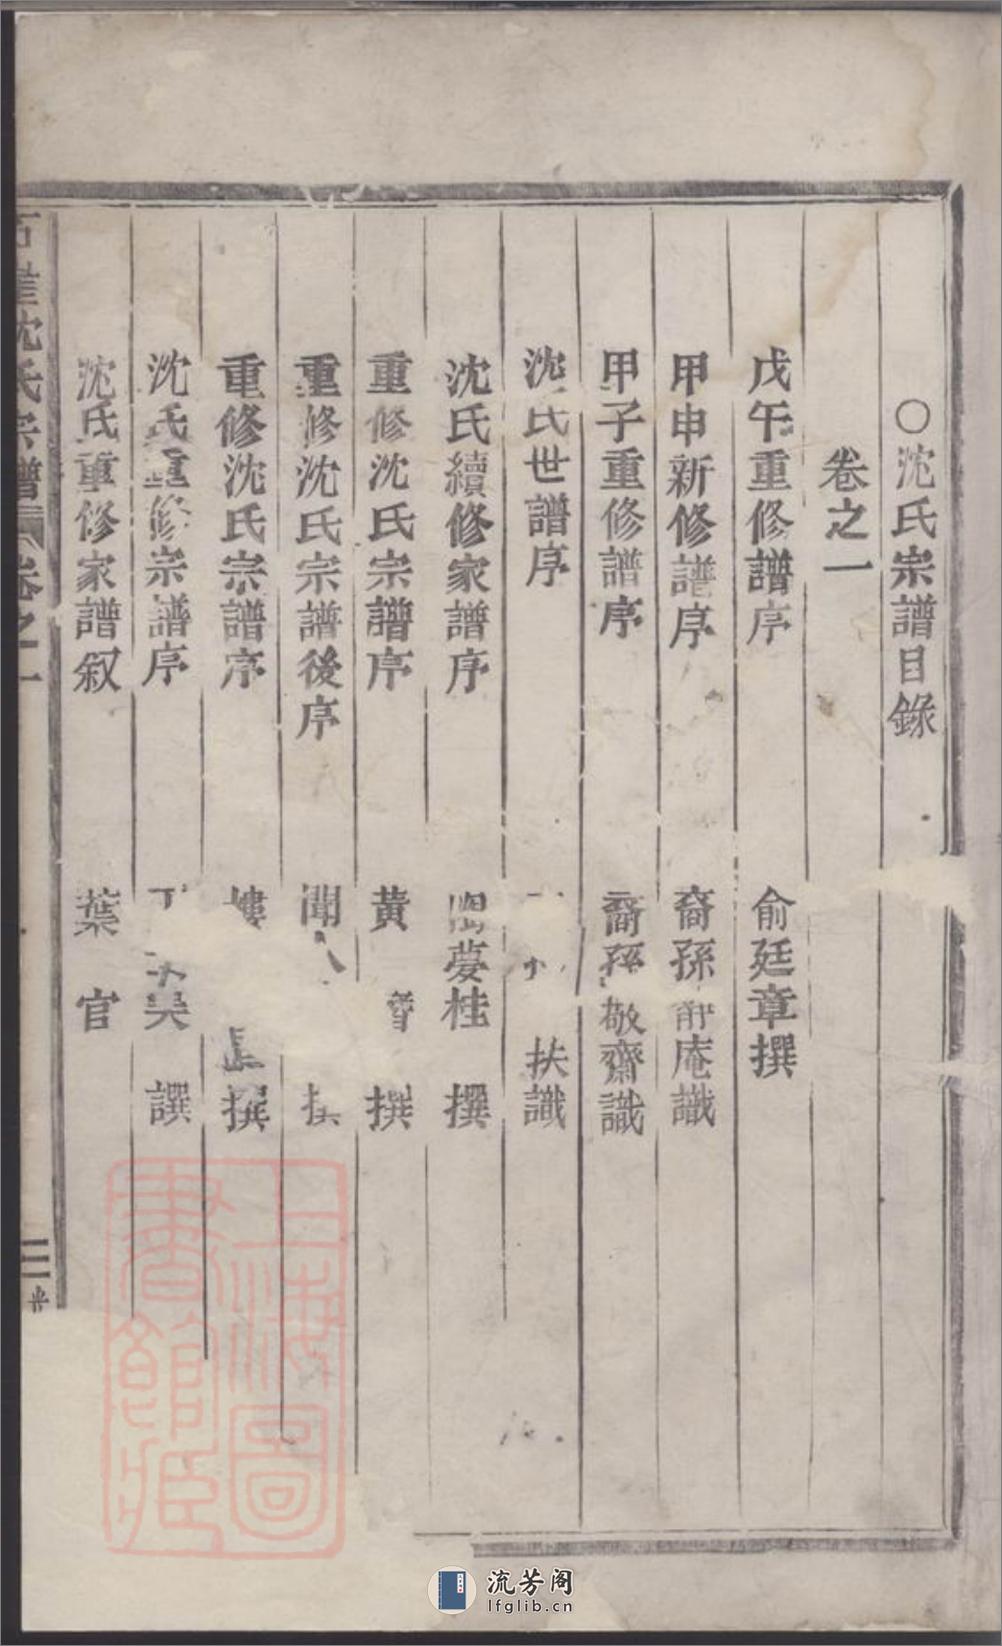 ○沈氏宗譜目錄
卷之一
戊午重修譜序 俞廷章撰
甲申新修譜序 裔孫 庵識
甲子重修譜序 裔孫敬齋識
沈氏世譜序 扶識
沈氏續修家譜序 夢桂 撰
重修沈氏宗譜序 黃 撰
重修沈氏宗譜後序 聞 撰
重修沈氏宗譜序 撰
沈氏重修宗譜序 吳 譔
沈氏重修家譜叙 葉 官
沈氏宗譜 卷之一
上海圖書館藏
流芳阁
lfglib.cn